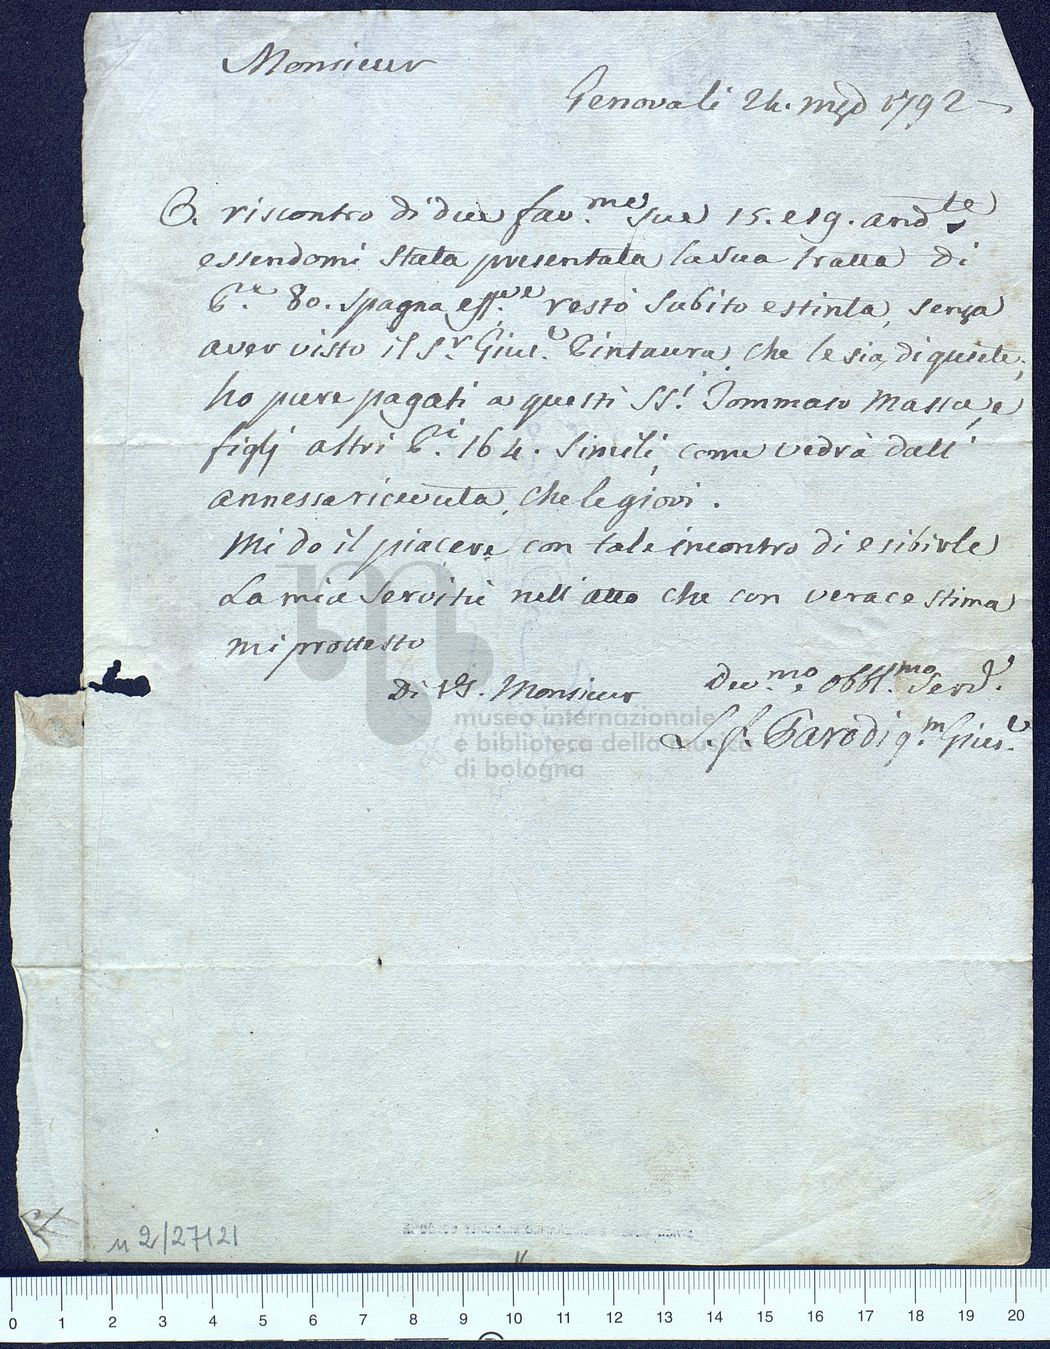 Monsieur
Genova li 24. mgo 1792
A riscontro di due fav.me sue 15. e 19. and.te
essendomi stata presentata la sua tratta di
P.e 80. Spagna eff.ve restò subito estinta, senza
aver visto il S.r Gius.e Pintaura, che le sia di quiete,
ho pure pagati a questi SS.i Tommaso Massa, e
figlj altri P.i 164. simili, come vedrà dall'
annessa ricevuta, che le giovi.
Mi do il piacere con tale incontro di esibirle
La mia servitù nell'atto che con verace stima
mi protesto
Di VS. Monsieur
Dev.mo e Obbl.mo Serv.e
Parodi q.m Gius.e
museo internazionale
e biblioteca della musica
di bologna
n 2/27121
0 1 2 3 4 5 6 7 8 9 10 11 12 13 14 15 16 17 18 19 20